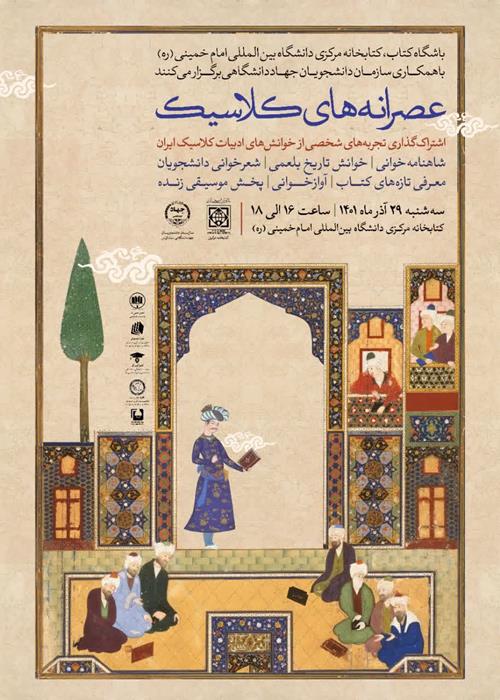 باشگاه کتاب، کتابخانه مرکزی دانشگاه بین المللی امام خمینی (ره)
با همکاری سازمان دانشجویان جهاددانشگاهی برگزار می‌کنند
عصرانه‌های کلاسیک
اشتراک‌گذاری تجربه‌های شخصی از خوانش‌های ادبیات کلاسیک ایران
شاهنامه خوانی | خوانش تاریخ بلعمی | شعرخوانی دانشجویان
معرفی تازه‌های کتاب | آوازخوانی | پخش موسیقی زنده
سه‌شنبه ۲۹ آذر ماه ۱۴۰۱ | ساعت ۱۶ الی ۱۸
کتابخانه مرکزی دانشگاه بین‌المللی امام خمینی (ره)